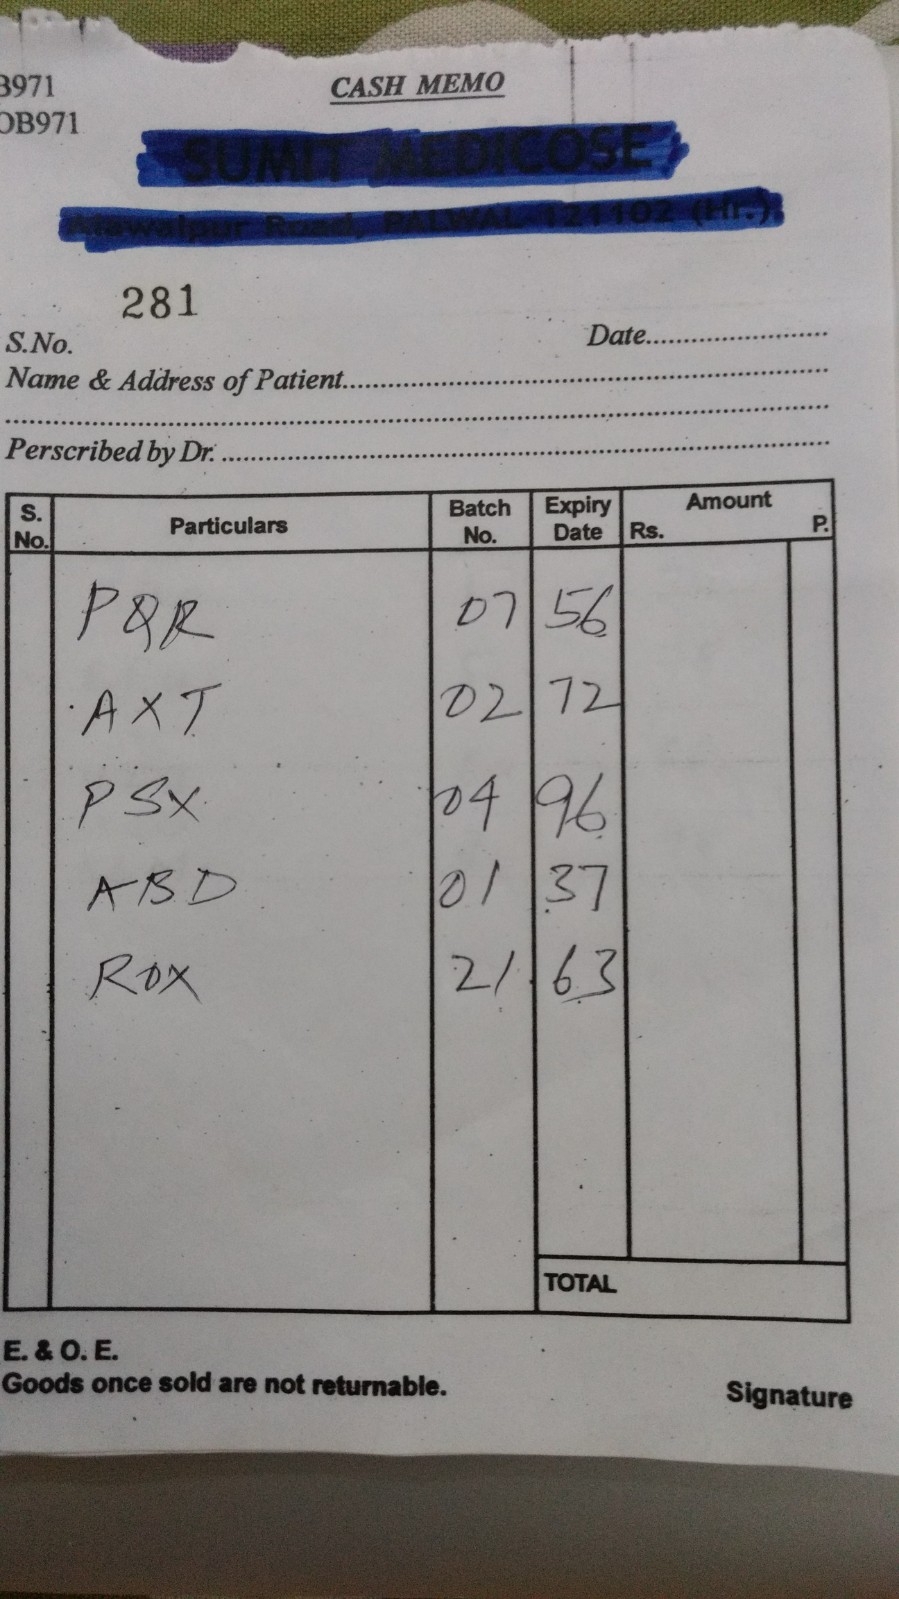 B971
CASH MEMO
OB971
SUMIT MEDICOSE
Road, PALWAL-121102 (Hr.)
281
S.No.
Date........................
Name & Address of Patient................................................................
................................................................................................
Perscribed by Dr. ................................................................
S. No. Particulars Batch No. Expiry Date Amount Rs. P.
PQR 07 56
AXT 02 72
PSX 04 96
ABD 01 37
ROX 21 63
TOTAL
E. & O. E.
Goods once sold are not returnable.
Signature